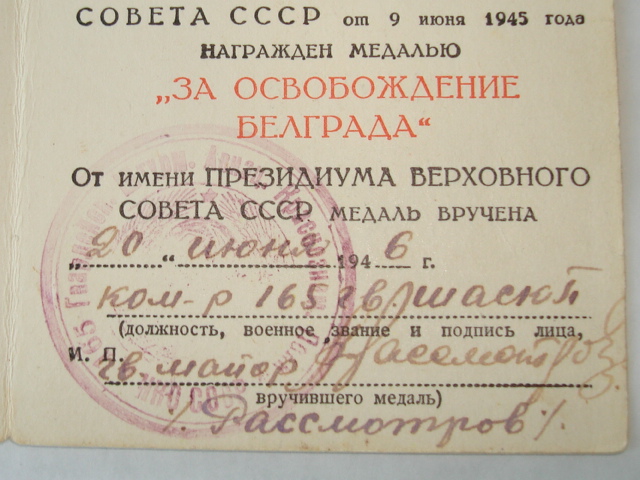 СОВЕТА СССР от 9 июня 1945 года
НАГРАЖДЕН МЕДАЛЬЮ
„ЗА ОСВОБОЖДЕНИЕ
БЕЛГРАДА“
От имени ПРЕЗИДИУМА ВЕРХОВНОГО
СОВЕТА СССР МЕДАЛЬ ВРУЧЕНА
„20“ июня 1946 г.
ком-р 165 гв.
(должность, военное звание и подпись лица,
И. П. гв. майор
вручившего медаль)
/Рассмотров/.